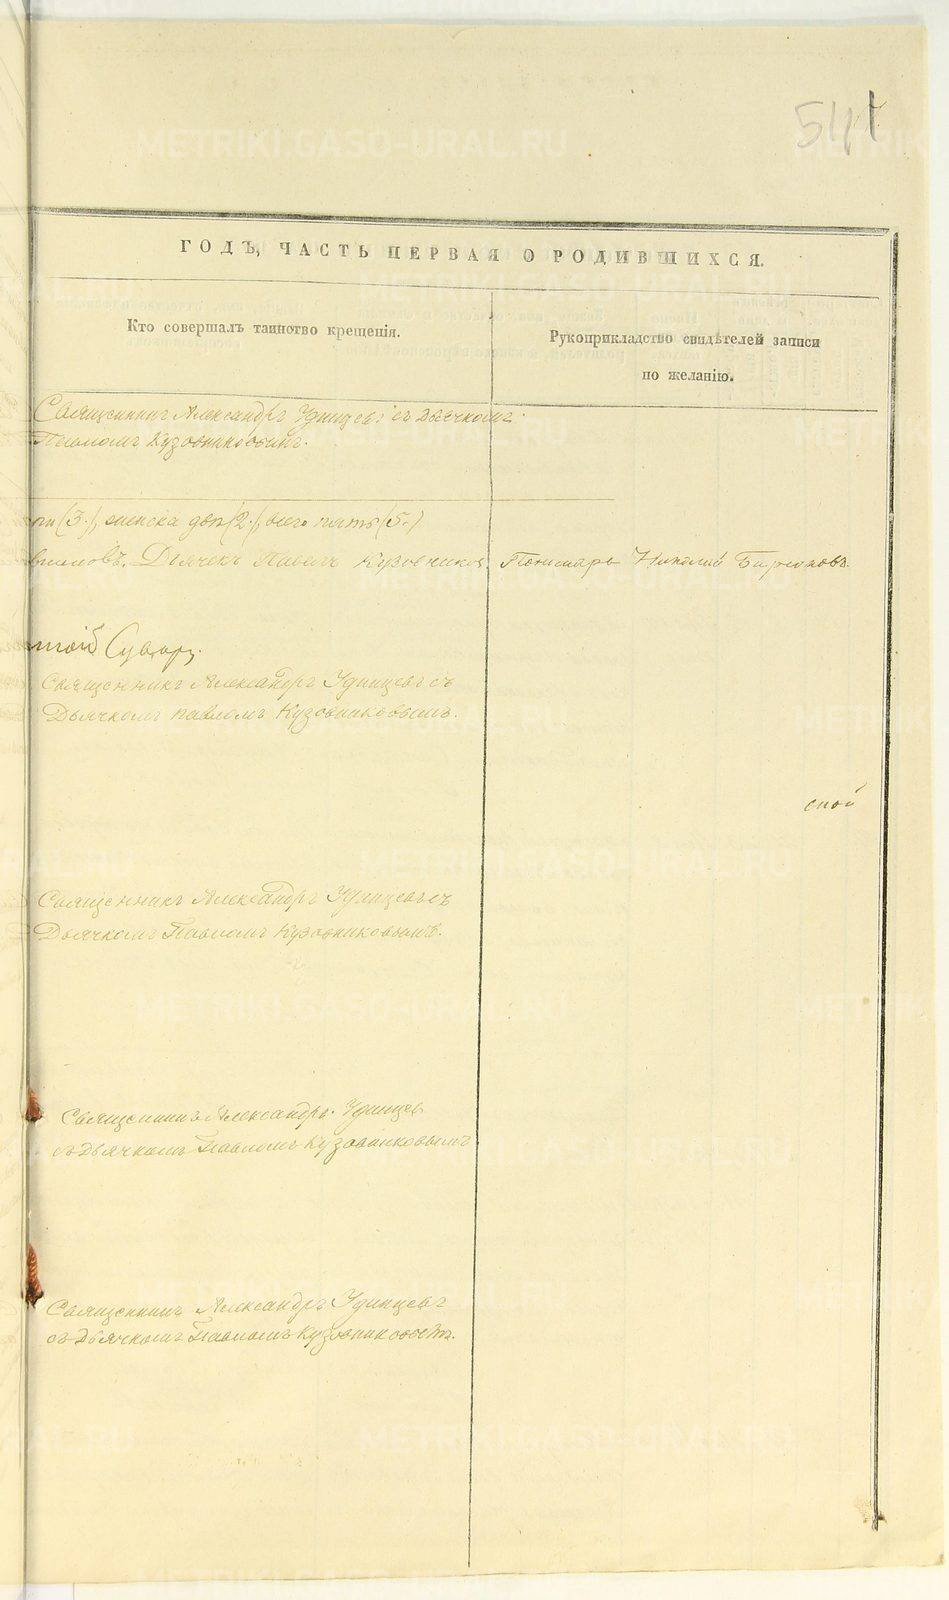 541
ГОДЪ, ЧАСТЬ ПЕРВАЯ О РОДИВШИХСЯ.
Кто совершалъ таинство крещенія.
Рукоприкладство свидѣтелей записи
по желанію.
Священникъ Александръ Удинцевъ съ Дьячкомъ
Павломъ Кузовниковымъ.
(3.), женска два (2.), всего пять (5.)
Дьячекъ Павелъ Кузовниковъ. Пономарь Николай
Священникъ Александръ Удинцевъ съ
Дьячкомъ Павломъ Кузовниковымъ.
Священникъ Александръ Удинцевъ съ
Дьячкомъ Павломъ Кузовниковымъ.
Священникъ Александръ Удинцев
съ Дьячкомъ Павломъ Кузовниковымъ
Священникъ Александръ Удинцевъ
съ Дьячкомъ Павломъ Кузовниковымъ.
METRIKI.GASO-URAL.RU